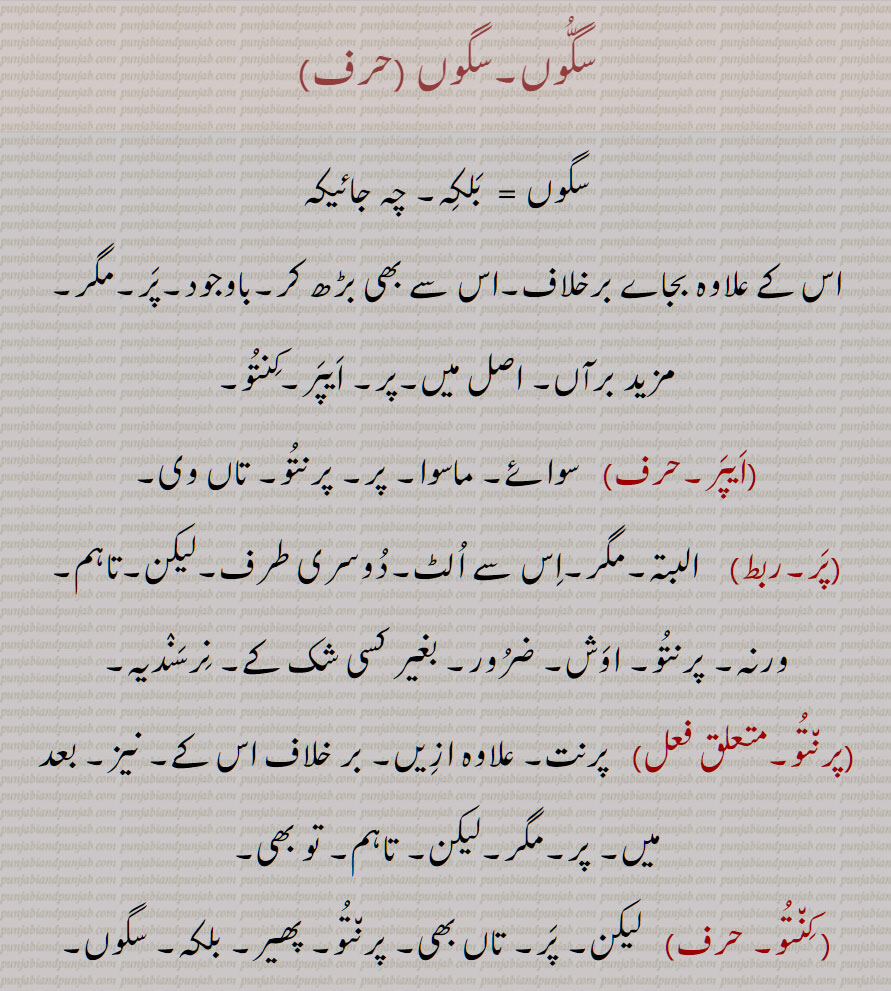 سگُّوں۔سگوں (حرف)
سگوں = بَلکِہ۔ چہ جائیکہ
اس کے علاوہ بجاے برخلاف۔اس سے بھی بڑھ کر۔باوجود۔پَر۔مگر۔
مزید برآں۔ اصل میں۔پر۔ اَیپَر۔کِنتُو۔
(اَیپَر۔حرف) سوائے۔ ماسوا۔ پر۔ پرنتُو۔ تاں وی۔
(پَر۔ربط) البتہ۔مگر۔اِس سے اُلٹ۔دُوسری طرف۔لیکن۔تاہم۔
ورنہ۔ پرنتُو۔ اوَش۔ ضرُور۔ بغیر کسی شک کے۔ نِرسَنْدیہ۔
(پرنّتُو۔متعلق فعل) پرنت۔ علاوہ ازِیں۔ بر خلاف اس کے۔ نیز۔ بعد
میں۔ پر۔مگر۔لیکن۔ تاہم۔ تو بھی۔
(کِنّتُو۔ حرف) لیکن۔ پَر۔ تاں بھی۔ پرنّتُو۔ پھیر۔ بلکہ۔ سگوں۔